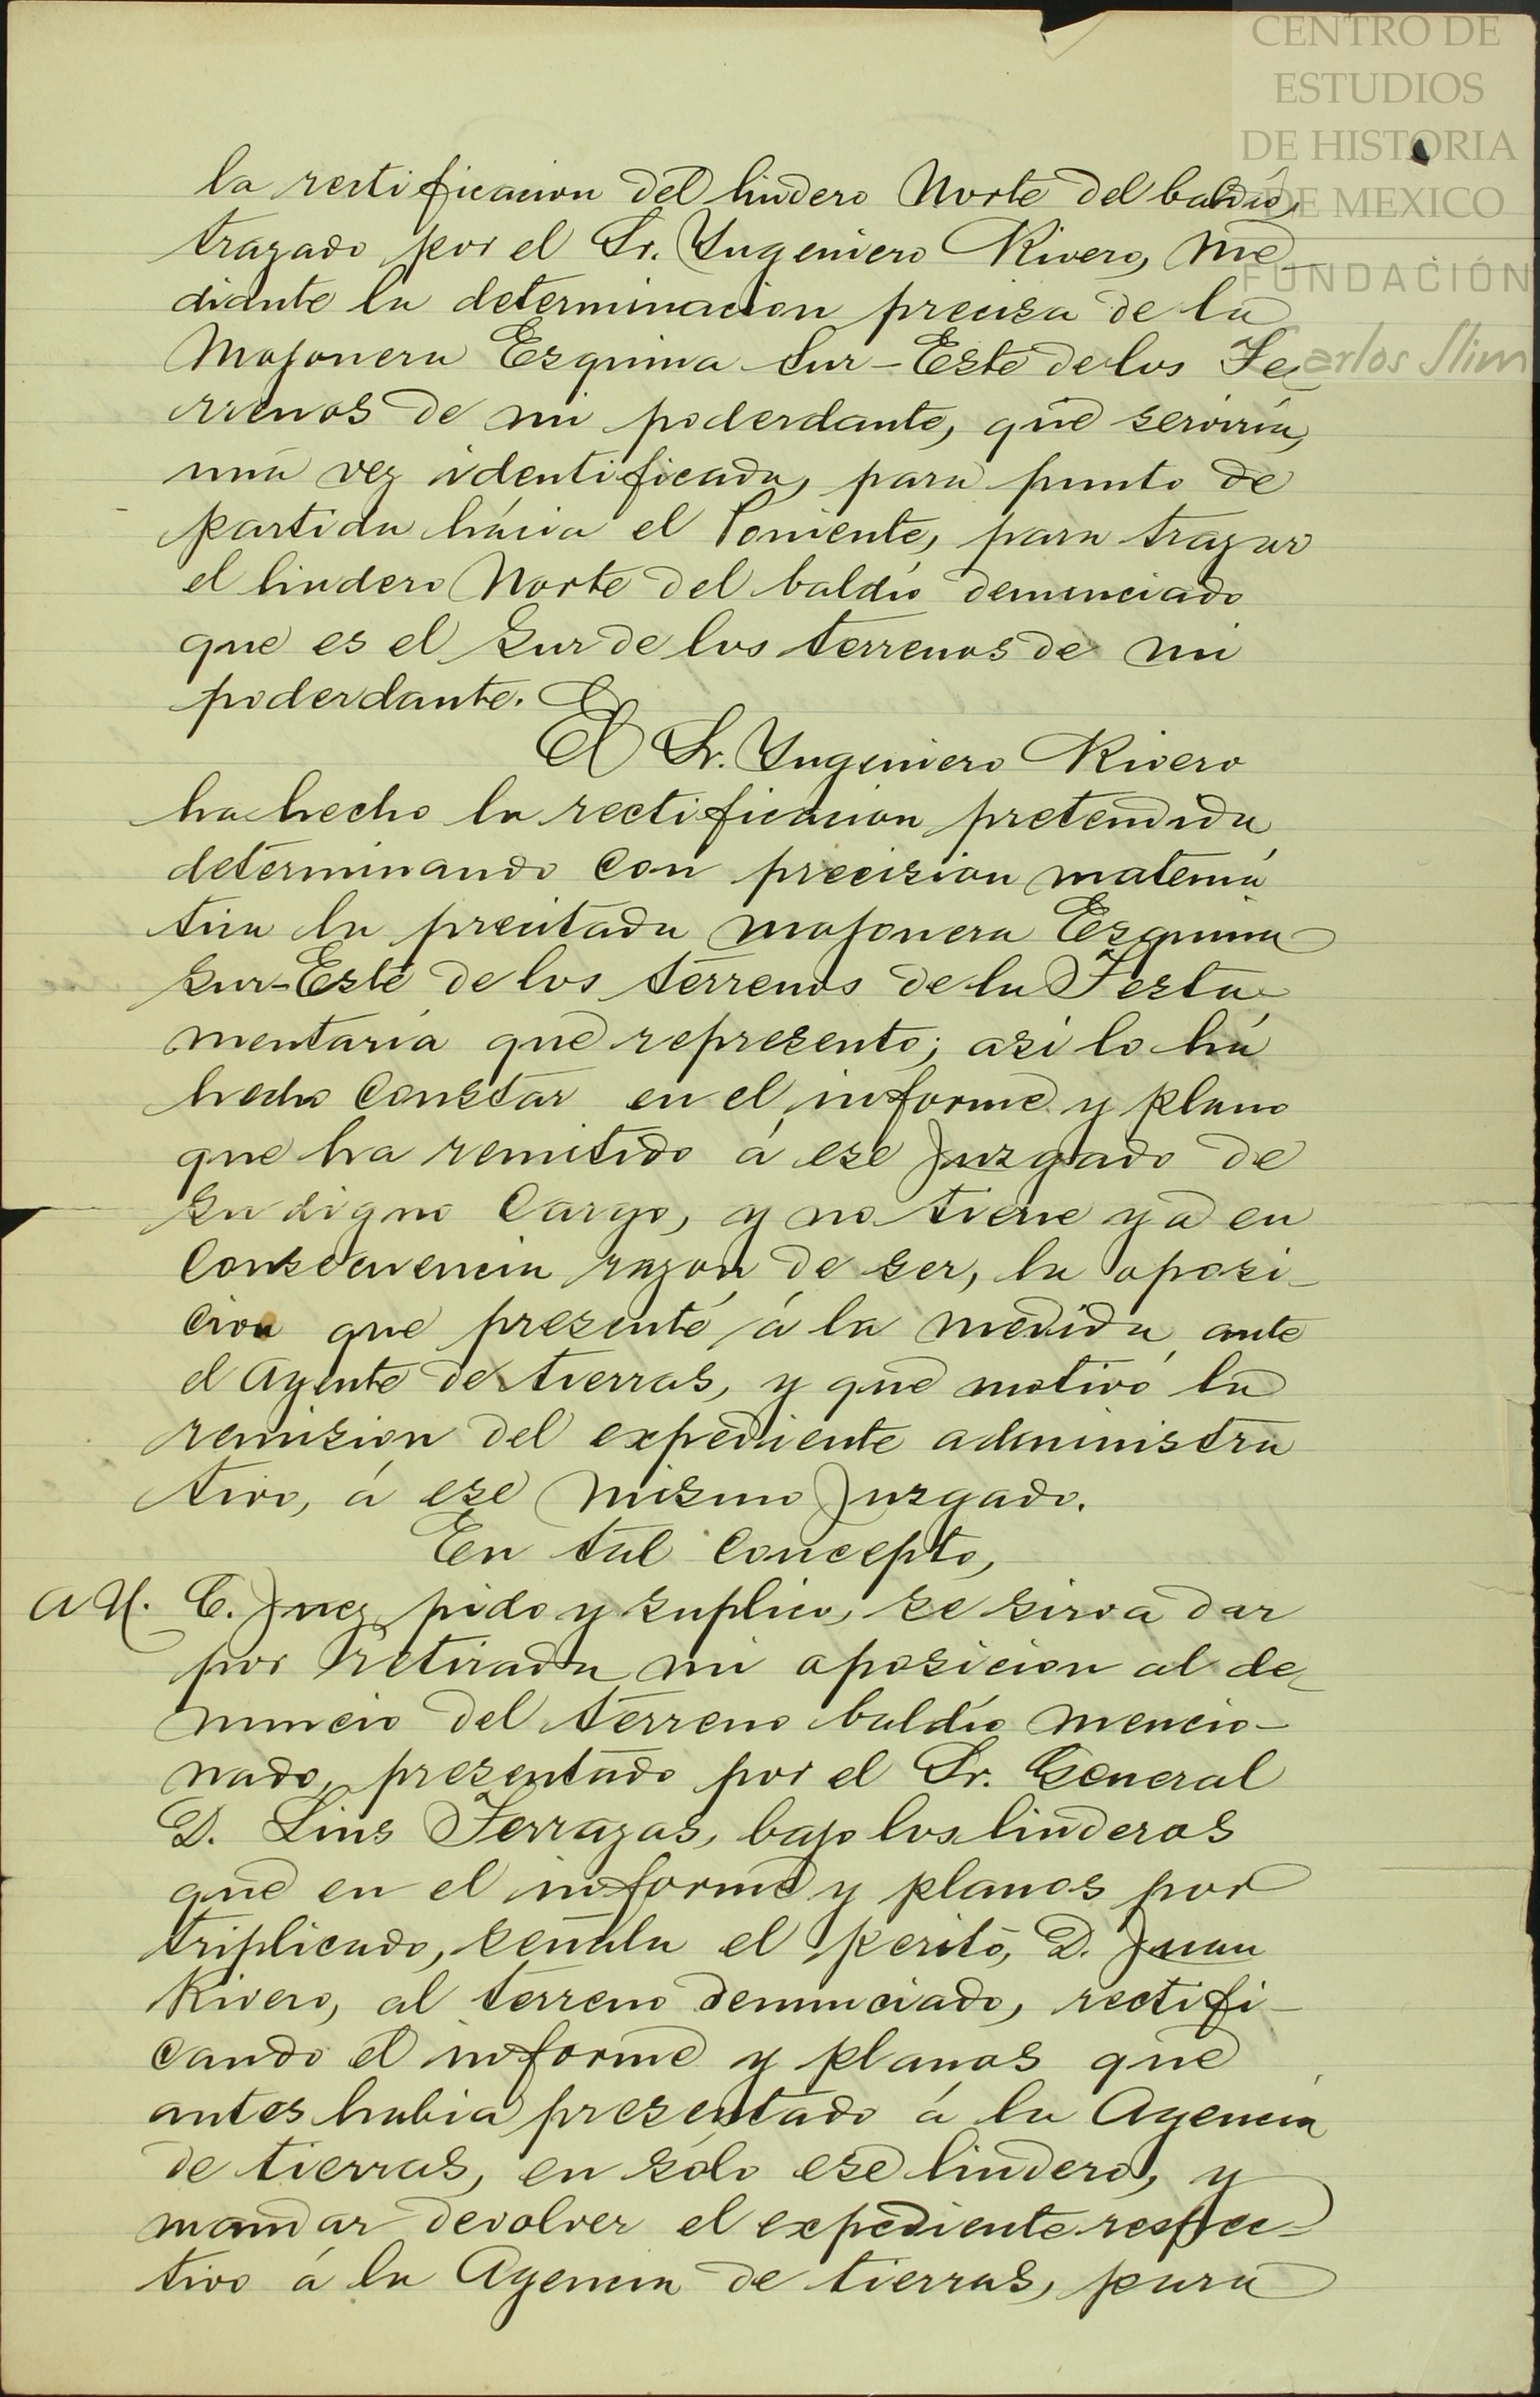 CENTRO DE
ESTUDIOS
DE HISTORIA
DE MEXICO
FUNDACIÓN
Carlos Slim
la rectificacion del lindero Norte del baldío,
trazado por el Sr. Yngeniero Rivero, me_
diante la determinacion precisa de la
Mojonera Esquina Sur-Este de los Te_
rrenos de mi poderdante, que serviría,
una vez identificada, para punto de
partida hácia el Poniente, para trazar
el lindero Norte del baldío denunciado
que es el Sur de los terrenos de mi
poderdante.
El Sr. Yngeniero Rivero
ha hecho la rectificacion pretendida,
determinando con precision matemá
tica la precitada mojonera Esquina
Sur-Este de los terrenos de la Testa
mentaria que represento; asi lo há
hecho constar en el informe y plano
que ha remitido á ese Juzgado de
su digno cargo, y no tiene ya en
consecuencia razon de ser, la oposi_
cion que presenté á la medida ante
el Agente de tierras, y que motivó la
remision del expediente administra
tivo, á ese mismo Juzgado.
En tal concepto,
A U. C. Juez pido y suplico, se sirva dar
por retirada mi oposicion al de_
nuncio del terreno baldío mencio-
nado, presentado por el Sr. General
D. Luis Terrazas, bajo los linderos
que en el informe y planos por
triplicado, señala el perito, D. Juan
Rivero, al terreno denunciado, rectifi-
cando el informe y planos que
antes habia presentado á la Agencia
de tierras, en sólo ese lindero, y
mandar devolver el expediente respec-
tivo á la Agencia de tierras, para